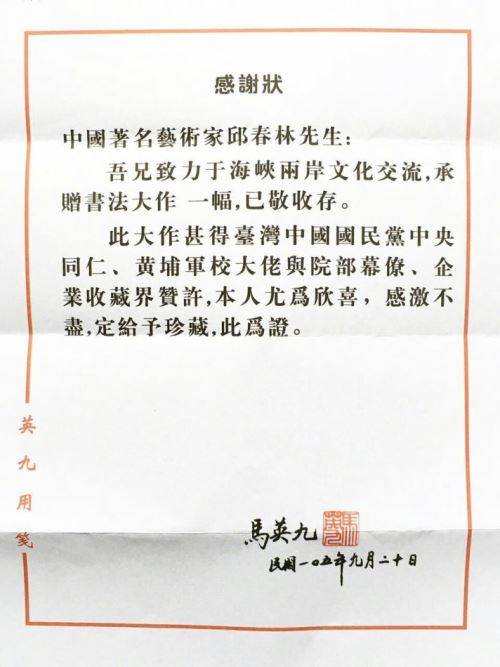 感謝狀
中國著名藝術家邱春林先生:
吾兄致力于海峽兩岸文化交流,承
贈書法大作 一幅,已敬收存。
此大作甚得臺灣中國國民黨中央
同仁、黄埔軍校大佬與院部幕僚、企
業收藏界贊許,本人尤爲欣喜，感激不
盡,定給予珍藏,此爲證。
英九用箋
馬英九
民國一0五年九月二十日